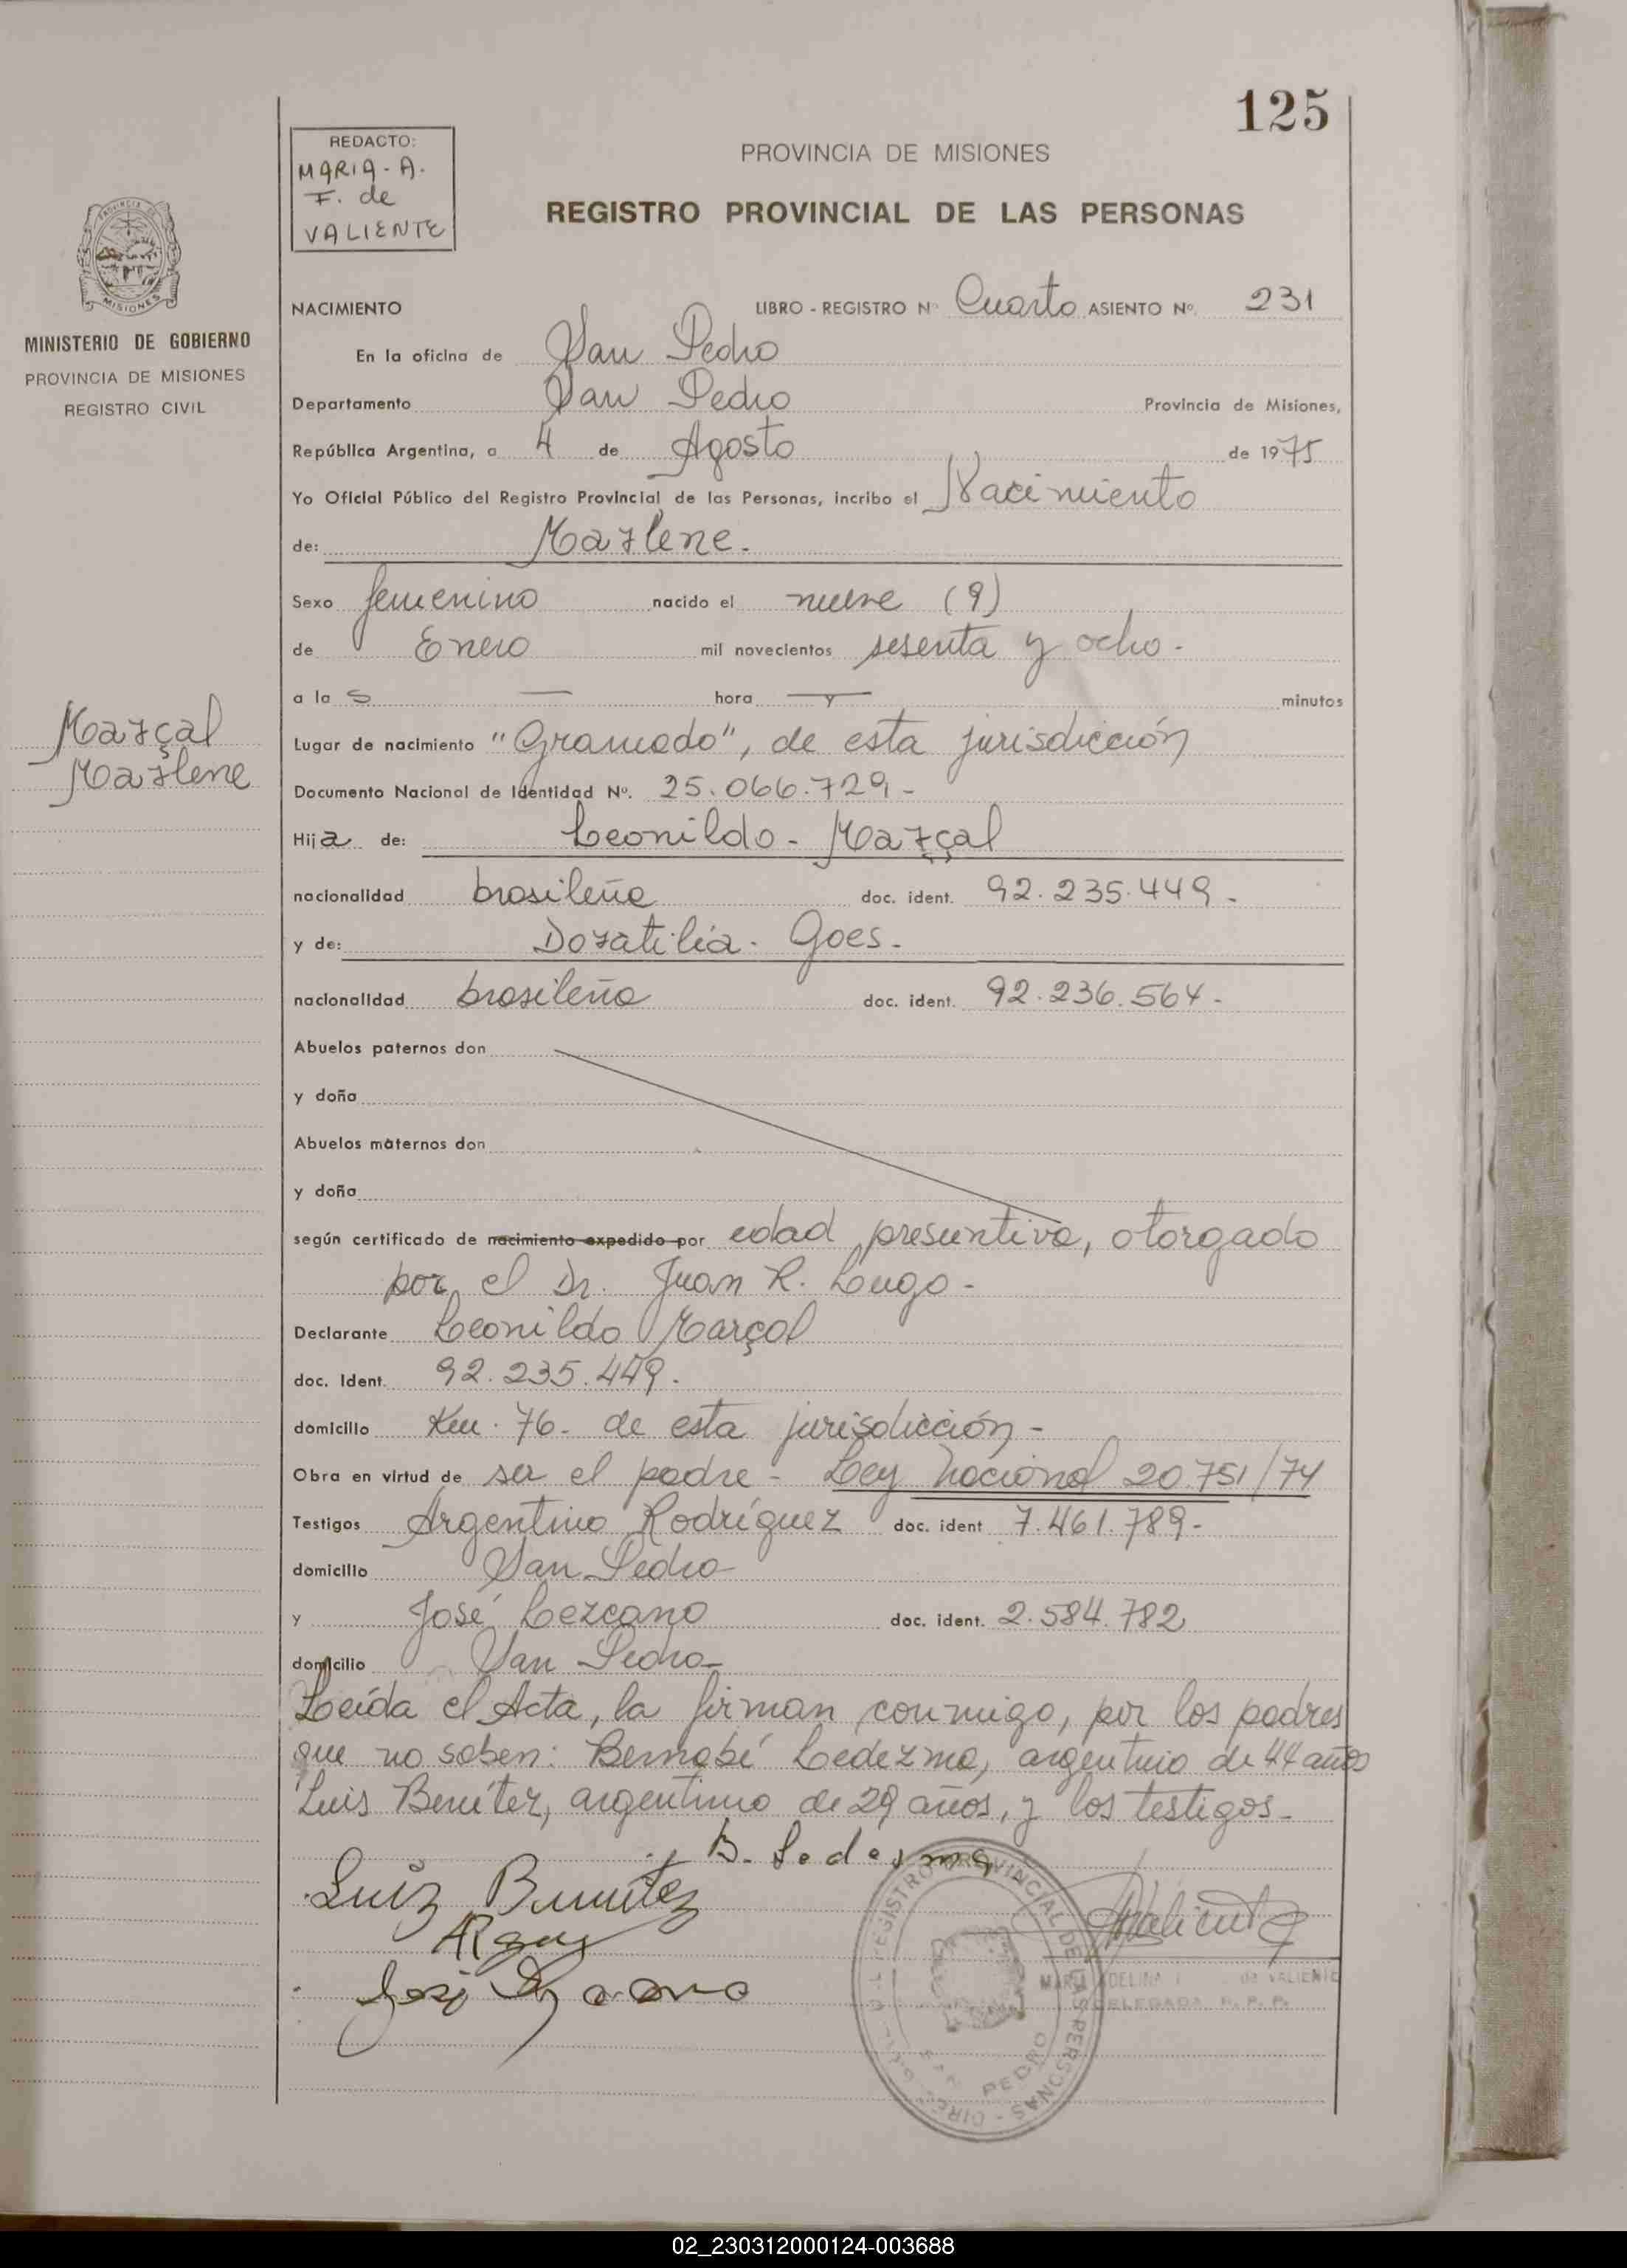 125
REDACTO:
MARIA - A.
F. de
VALIENTE
PROVINCIA DE MISIONES
REGISTRO PROVINCIAL DE LAS PERSONAS
MISIONES
MINISTERIO DE GOBIERNO
PROVINCIA DE MISIONES
REGISTRO CIVIL
NACIMIENTO LIBRO - REGISTRO Nº Cuarto ASIENTO Nº. 231
En la oficina de San Pedro
Departamento San Pedro Provincia de Misiones,
República Argentina, a 4 de Agosto de 1975
Yo Oficial Público del Registro Provincial de las Personas, incribo el Nacimiento
de: Marlene.
Sexo femenino nacido el nueve (9)
de Enero mil novecientos sesenta y ocho.
a las — hora — y — minutos
Marçal
Marlene
Lugar de nacimiento "Gramado", de esta jurisdicción
Documento Nacional de Identidad Nº. 25.066.729 -
Hija de: Leonildo - Marçal
nacionalidad brasileña doc. ident. 92.235.449 -
y de: Doratilia - Goes.
nacionalidad brasileña doc. ident. 92.236.564 -
Abuelos paternos don
y doña
Abuelos maternos don
y doña
según certificado de nacimiento expedido por edad presuntiva, otorgado
por el Dr. Juan R. Lugo -
Declarante Leonildo Marçal
doc. Ident. 92.235.449.
domicilio Km. 76 - de esta jurisdicción -
Obra en virtud de ser el padre - Ley Nacional 20.751/74
Testigos Argentino Rodríguez doc. ident 7.461.789 -
domicilio San Pedro
y José Lezcano doc. ident. 2.584.782
domicilio San Pedro -
Leída el Acta, la firman conmigo, por los padres
que no saben: Bernabé Ledezma, argentino de 44 años
Luis Benítez, argentino de 29 años, y los testigos -
B. Ledesma
Luiz Benitez
José Lezcano
Valiente
REGISTRO PROVINCIAL DE LAS PERSONAS
PEDRO
DE VALIENTE
DELEGADA R. P. P.
02_230312000124-003688